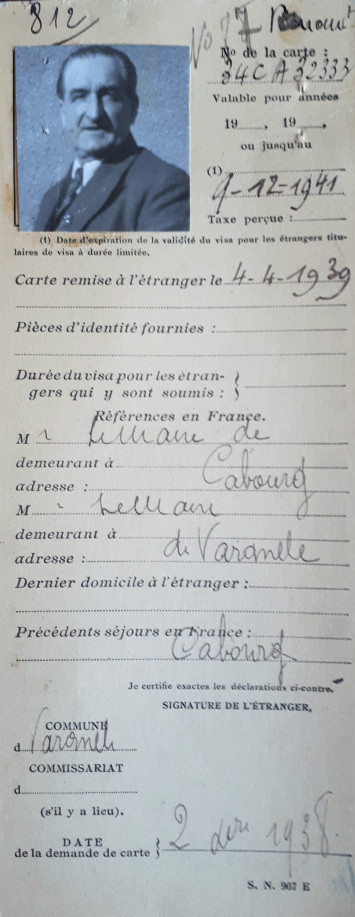 812
No 77
No de la carte :
34CA32333
Valable pour années
19......, 19......,
ou jusqu'au
(1)
9-12-1941
Taxe perçue :
(1) Date d'expiration de la validité du visa pour les étrangers titu-
laires de visa à durée limitée.
Carte remise à l'étranger le 4-4-1939
Pièces d'identité fournies :
Durée du visa pour les étran-
gers qui y sont soumis :
Références en France.
M r le Maire de
demeurant à
Cabourg
adresse :
M " le Maire
demeurant à
de Varaville
adresse :
Dernier domicile à l'étranger :
Précédents séjours en France :
Cabourg
Je certifie exactes les déclarations ci-contre.
SIGNATURE DE L'ÉTRANGER,
COMMUNE
d Varaville
COMMISSARIAT
d
(s'il y a lieu).
DATE
de la demande de carte
2 1938.
S. N. 907 E